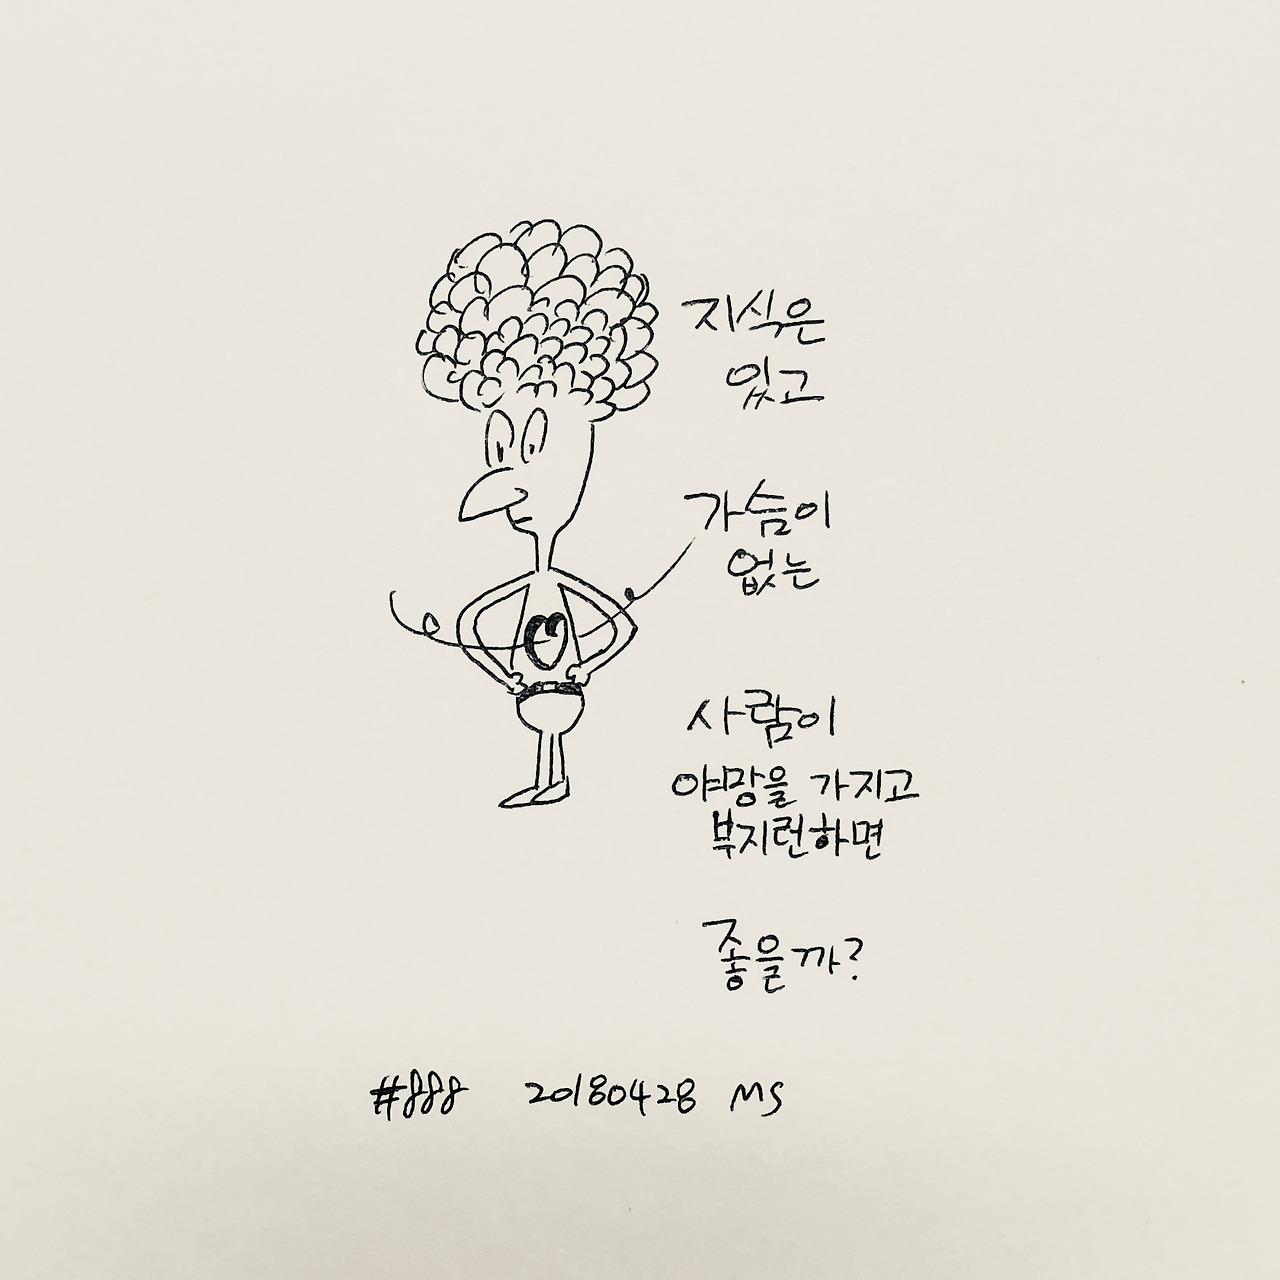 지식은
있고
가슴이
없는
사람이
야망을 가지고
부지런하면
좋을까?
#888 20180428 MS